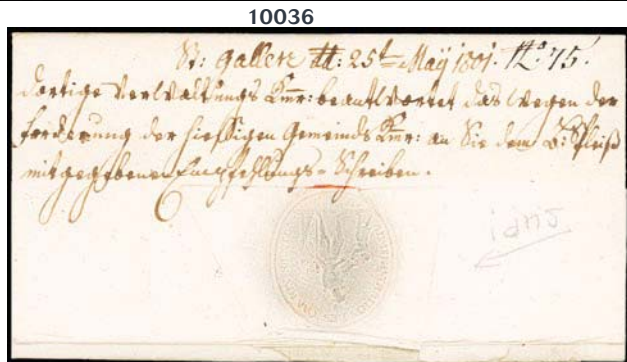 10036
St: Gallen 25t May 1801. No. 75.
dortige Verwaltungs Kmr: beantwortet das wegen der
forderung der hiessigen Gemeinds Kmr: an Sie dem B:
mitgegebenen Empfehlungs-Schreiben.